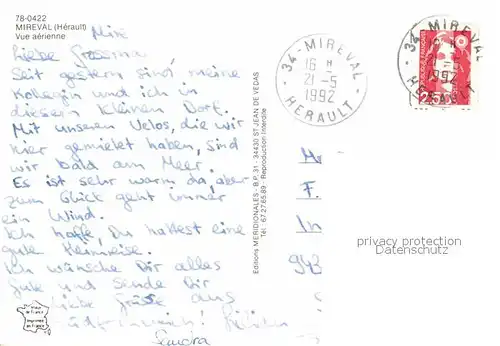 78-0422
MIREVAL (Hérault)
Vue aérienne
Liebe Grossma,
Seit gestern sind meine
Kollegin und ich in
diesem kleinen Dorf.
Mit unseren Velos, die wir
hier gemietet haben, sind
wir bald am Meer.
Es ist sehr warm da, aber
zum Glück geht immer
ein Wind.
Ich hoffe, Du hattest eine
gute Heimreise.
Ich wünsche Dir alles
Gute und sende Dir
liebe Grüsse aus
Sandra
Imprimée en France
Editions MERIDIONALES - B.P. 31 - 34430 ST JEAN DE VEDAS
Tél : 67.27.65.89 - Reproduction Interdite
34 - MIREVAL
16 H
21-5
1992
HERAULT
34 - MIREVAL
1992
HERAULT
privacy protection
Datenschutz